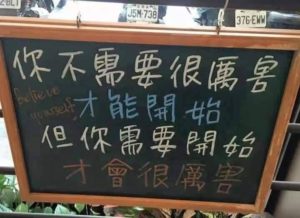 J5M-738
376-EWW
你不需要很厲害
believe
yourself
才能開始
但你需要開始
才會很厲害